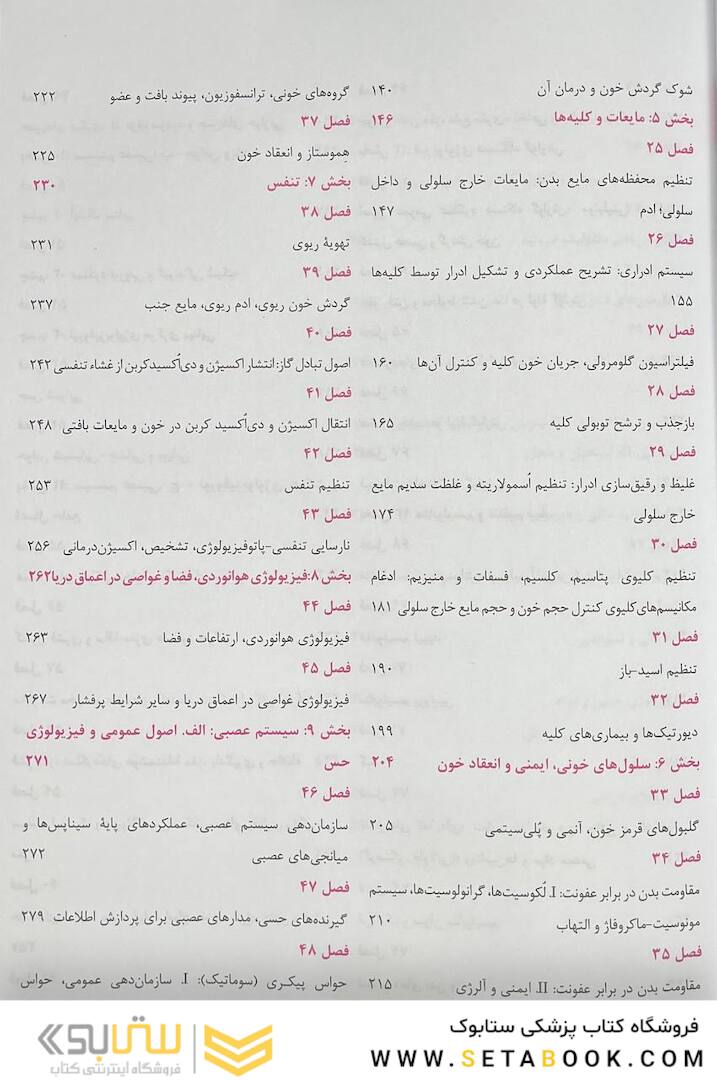 شوک گردش خون و درمان آن ۱۴۰
بخش ۵: مایعات و کلیه‌ها ۱۴۶
فصل ۲۵
تنظیم محفظه‌های مایع بدن: مایعات خارج سلولی و داخل
سلولی؛ ادم ۱۴۷
فصل ۲۶
سیستم ادراری: تشریح عملکردی و تشکیل ادرار توسط کلیه‌ها
۱۵۵
فصل ۲۷
فیلتراسیون گلومرولی، جریان خون کلیه و کنترل آن‌ها ۱۶۰
فصل ۲۸
بازجذب و ترشح توبولی کلیه ۱۶۵
فصل ۲۹
غلیظ و رقیق‌سازی ادرار: تنظیم اُسمولاریته و غلظت سدیم مایع
خارج سلولی ۱۷۴
فصل ۳۰
تنظیم کلیوی پتاسیم، کلسیم، فسفات و منیزیم: ادغام
مکانیسم‌های کلیوی کنترل حجم خون و حجم مایع خارج سلولی ۱۸۱
فصل ۳۱
تنظیم اسید-باز ۱۹۰
فصل ۳۲
دیورتیک‌ها و بیماری‌های کلیه ۱۹۹
بخش ۶: سلول‌های خونی، ایمنی و انعقاد خون ۲۰۴
فصل ۳۳
گلبول‌های قرمز خون، آنمی و پُلی‌سیتمی ۲۰۵
فصل ۳۴
مقاومت بدن در برابر عفونت: I. لُکوسیت‌ها، گرانولوسیت‌ها، سیستم
مونوسیت-ماکروفاژ و التهاب ۲۱۰
فصل ۳۵
مقاومت بدن در برابر عفونت: II. ایمنی و آلرژی ۲۱۵
گروه‌های خونی، ترانسفوزیون، پیوند بافت و عضو ۲۲۲
فصل ۳۷
هِموستاز و انعقاد خون ۲۲۵
بخش ۷: تنفس ۲۳۰
فصل ۳۸
تهویهٔ ریوی ۲۳۱
فصل ۳۹
گردش خون ریوی، ادم ریوی، مایع جنب ۲۳۷
فصل ۴۰
اصول تبادل گاز: انتشار اکسیژن و دی‌اُکسیدکربن از غشاء تنفسی ۲۴۲
فصل ۴۱
انتقال اکسیژن و دی‌اُکسید کربن در خون و مایعات بافتی ۲۴۸
فصل ۴۲
تنظیم تنفس ۲۵۳
فصل ۴۳
نارسایی تنفسی-پاتوفیزیولوژی، تشخیص، اکسیژن‌درمانی ۲۵۶
بخش ۸: فیزیولوژی هوانوردی، فضا و غواصی در اعماق دریا ۲۶۲
فصل ۴۴
فیزیولوژی هوانوردی، ارتفاعات و فضا ۲۶۳
فصل ۴۵
فیزیولوژی غواصی در اعماق دریا و سایر شرایط پرفشار ۲۶۷
بخش ۹: سیستم عصبی: الف. اصول عمومی و فیزیولوژی
حس ۲۷۱
فصل ۴۶
سازمان‌دهی سیستم عصبی، عملکردهای پایهٔ سیناپس‌ها و
میانجی‌های عصبی ۲۷۲
فصل ۴۷
گیرنده‌های حسی، مدارهای عصبی برای پردازش اطلاعات ۲۷۹
فصل ۴۸
حواس پیکری (سوماتیک): I. سازمان‌دهی عمومی، حواس
فروشگاه کتاب پزشکی ستابوک
WWW.SETABOOK.COM
ستابوک
فروشگاه اینترنتی کتاب